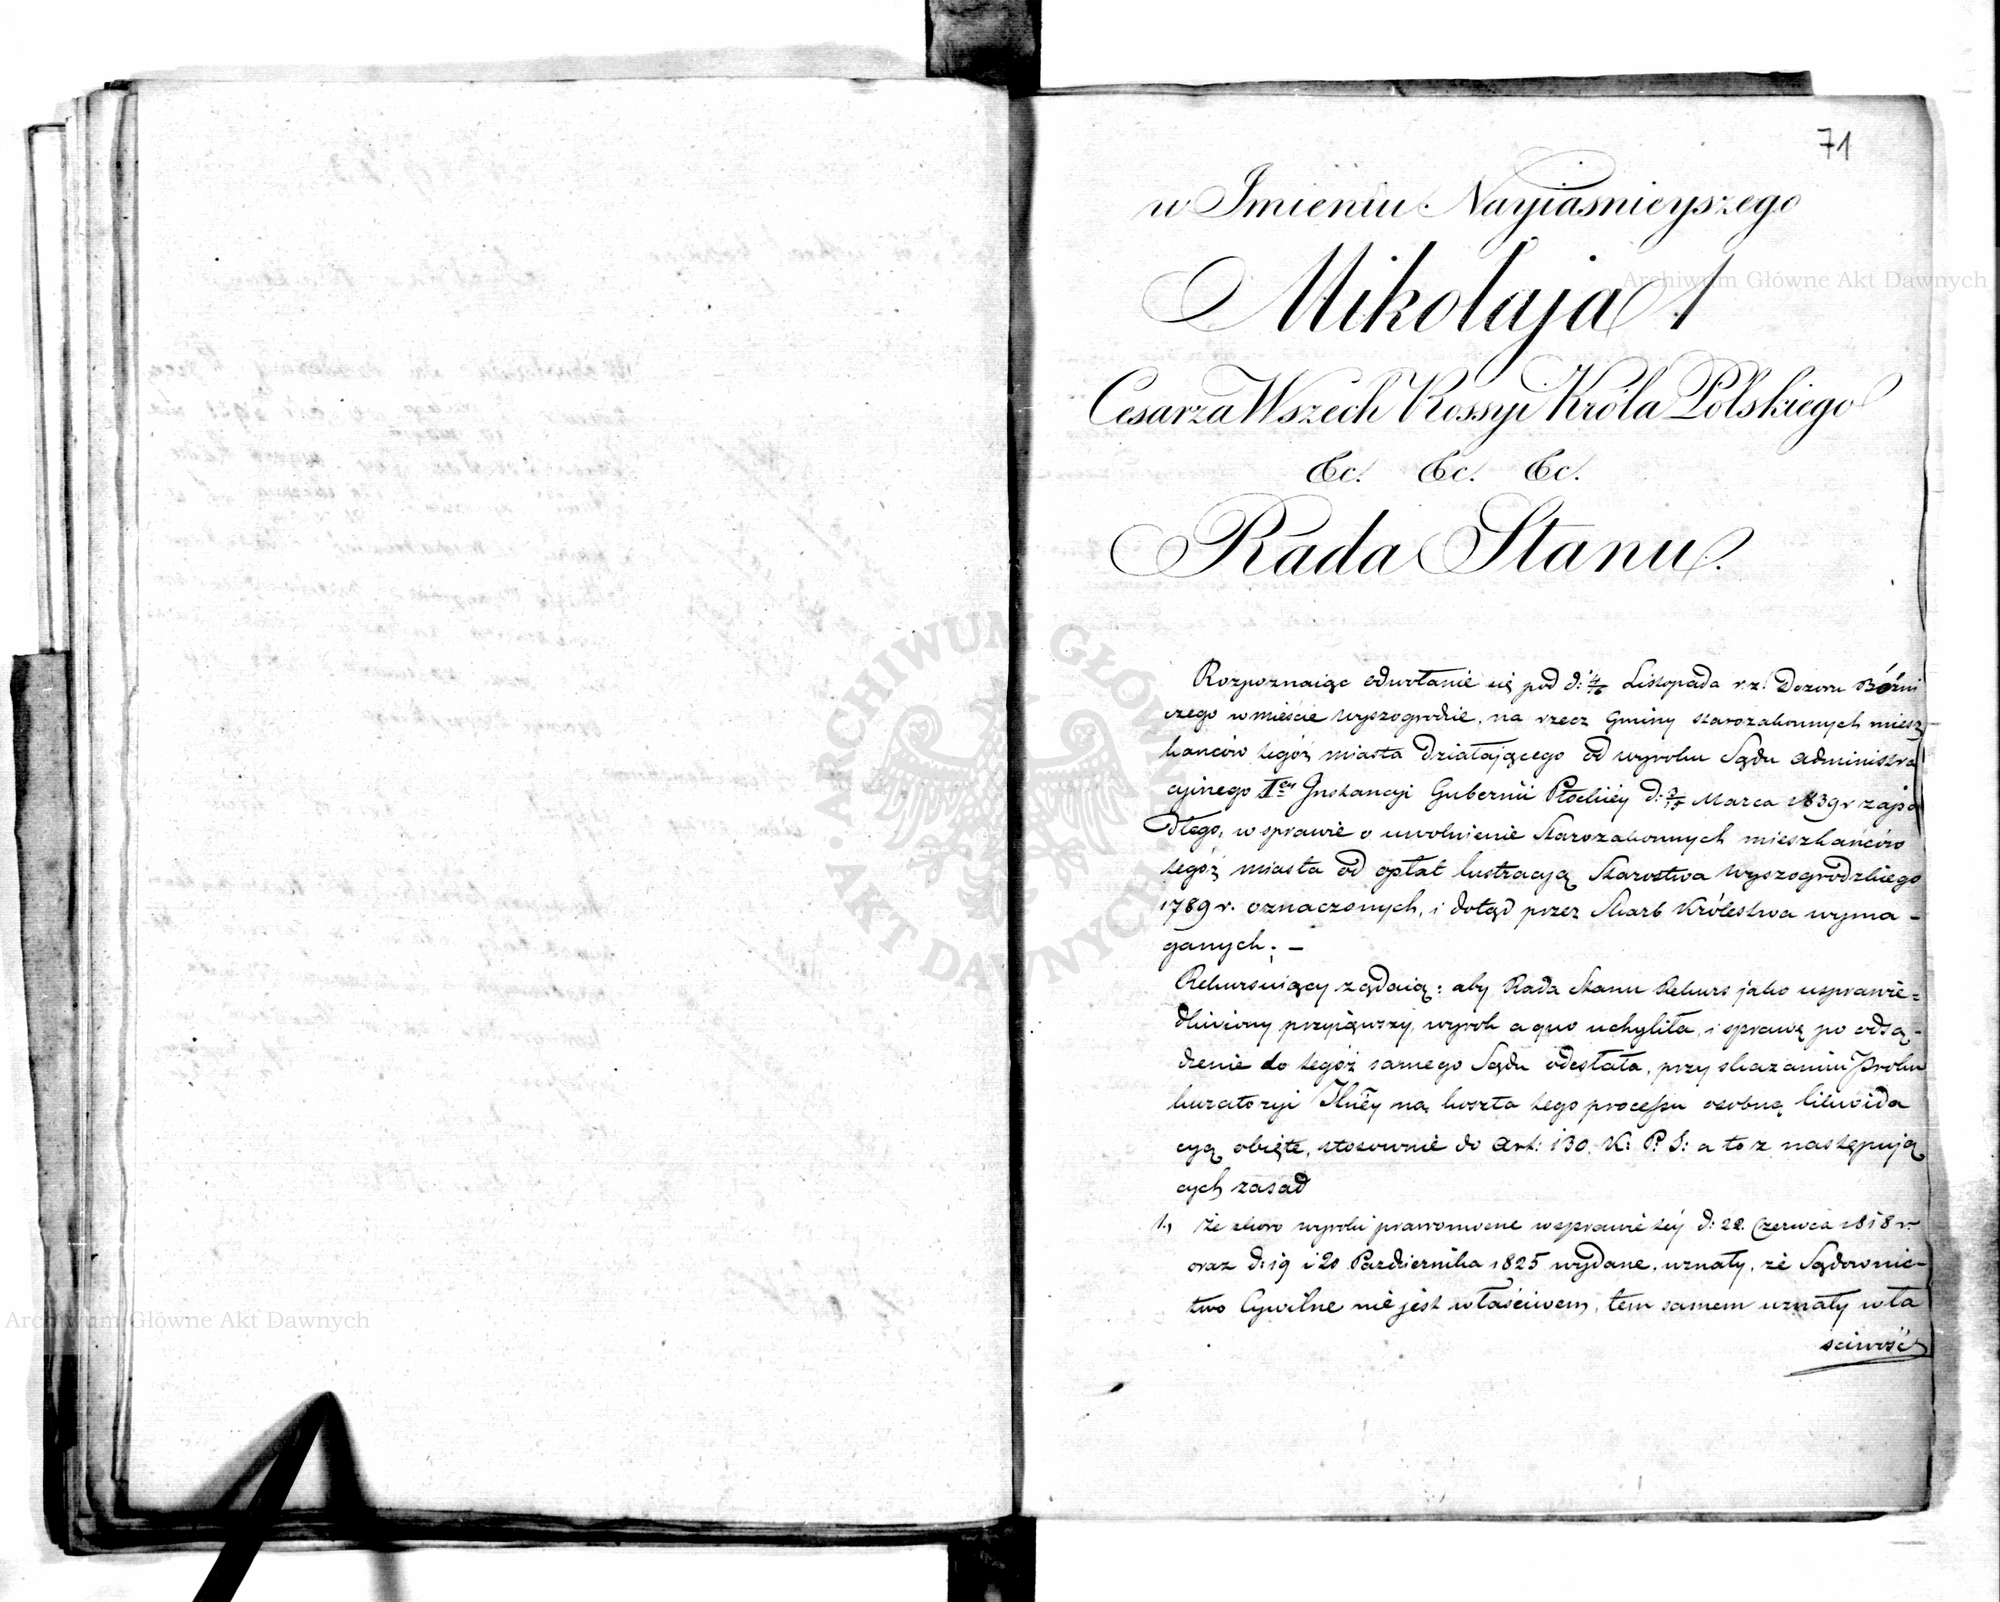 71
w Imieniu Nayiasnieyszego
Mikołaja I
Cesarza Wszech Rossyi Króla Polskiego
&c. &c. &c.
Rada Stanu.
Rozpoznaiąc odwołanie się pod d: 4/16 Listopada r. z. Dozoru Bożni
czego w mieście Wyszogrodzie, na rzecz Gminy starozakonnych miesz
kańców tegóż miasta działającego od wyroku Sądu Administra
cyjnego Iey Instancyi Gubernii Płockiéy d: 3/15 Marca 1839 r zapa
dłego, w sprawie o uwolnienie Starozakonnych mieszkańców
tegóż miasta od opłat lustracyą Starostwa Wyszogrodzkiego
1789 r. oznaczonych, i dotąd przez Skarb Królestwa wyma -
ganych; -
Rekursuiący żądaią: aby Rada Stanu Rekurs jako usprawie=
dliwiony przyiąwszy, wyrok a quo uchyliła, i sprawę po odsą-
dzenie do tegóż samego Sądu odesłała, przy skazaniu Proku
kuratoryi Jlnéy na koszta tego processu osobną likwida
cyą obięte, stosownie do Art: 130. K: P. S: a to z następują
cych zasad
1., że skoro wyroki prawomocne w sprawie téy d: 22. Czerwca 1818 r
oraz d: 19 i 20 Października 1825 wydane, uznały, że Sądownic-
two Cywilne nie jest właściwem, tem samem uznały wła
sciwość
Archiwum Główne Akt Dawnych
Archiwum Główne Akt Dawnych
ARCHIWUM GŁÓWNE · AKT DAWNYCH ·